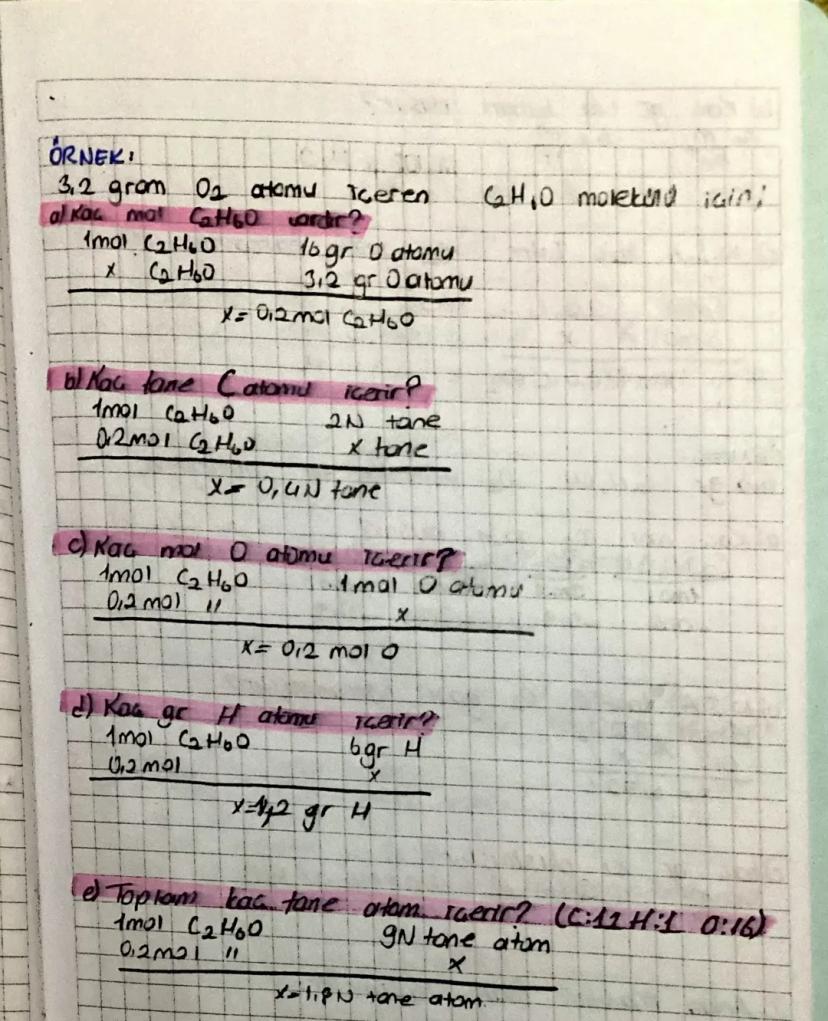 ÖRNEK:
3,2 gram O2 atomu içeren C2H6O molekülü için;
a) Kaç mol C2H6O vardır?
1mol C2H6O 16gr O atomu
x C2H6O 3,2 gr O atomu
x = 0,2mol C2H6O
b) Kaç tane C atomu içerir?
1mol C2H6O 2N tane
0,2mol C2H6O x tane
x = 0,4N tane
c) Kaç mol O atomu içerir?
1mol C2H6O 1mol O atomu
0,2 mol " x
x = 0,2 mol O
d) Kaç gr H atomu içerir?
1mol C2H6O 6gr H
0,2 mol x
x=1,2 gr H
e) Toplam kaç tane atom içerir? (C:12 H:1 O:16)
1mol C2H6O 9N tane atom
0,2mol " x
x=1,8N tane atom